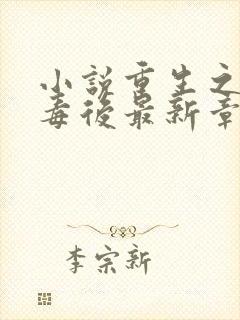 小説重生之
毒後最新章
李宗新